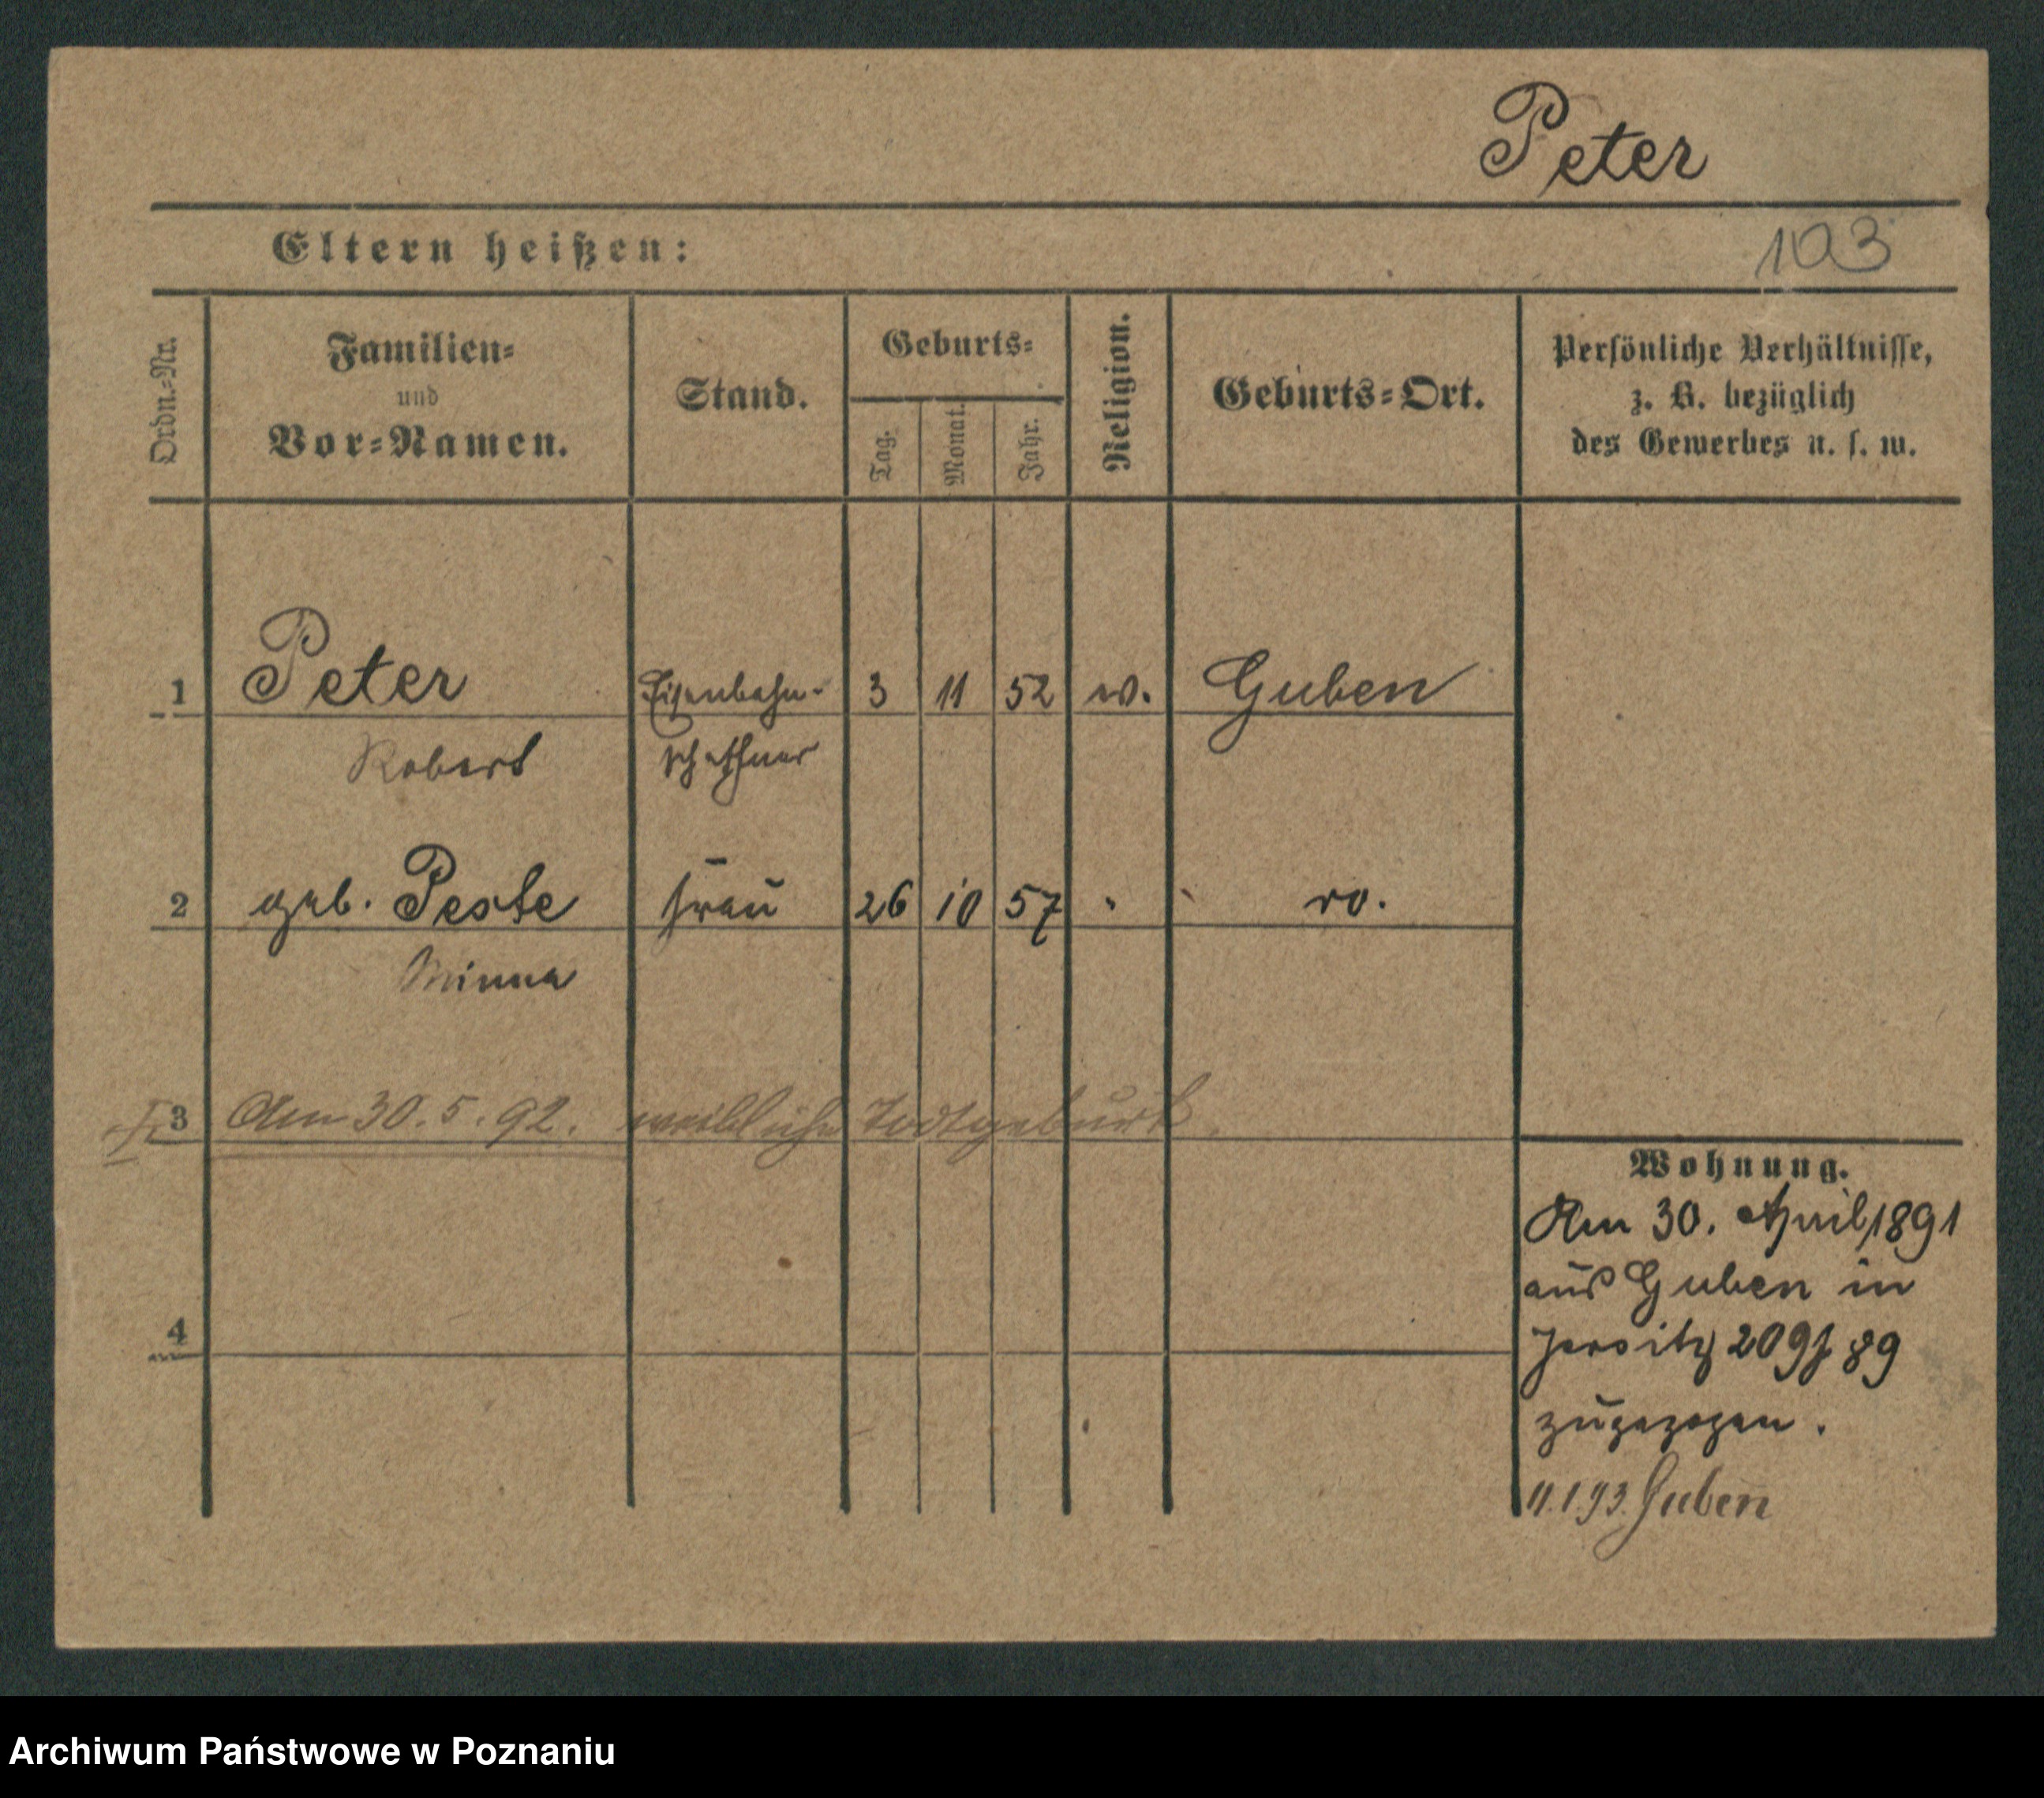 Peter
Eltern heißen:
103
Ordn.-Nr.
Familien-
und
Vor-Namen.
Stand.
Geburts-
Tag.
Monat.
Jahr.
Religion.
Geburts-Ort.
Persönliche Verhältnisse,
z. B. bezüglich
des Gewerbes u. s. w.
1 Peter Eisenbahn- 3 11 52 ev. Guben
Robert schaffner
2 geb. Peste Frau 26 10 57 " "
Minna
3 Am 30. 5. 92. weibliche Todtgeburt.
4
Wohnung.
Am 30. April 1891
aus Guben in
Jersitz 209f 89
zugezogen.
11.1.93. Guben
Archiwum Państwowe w Poznaniu